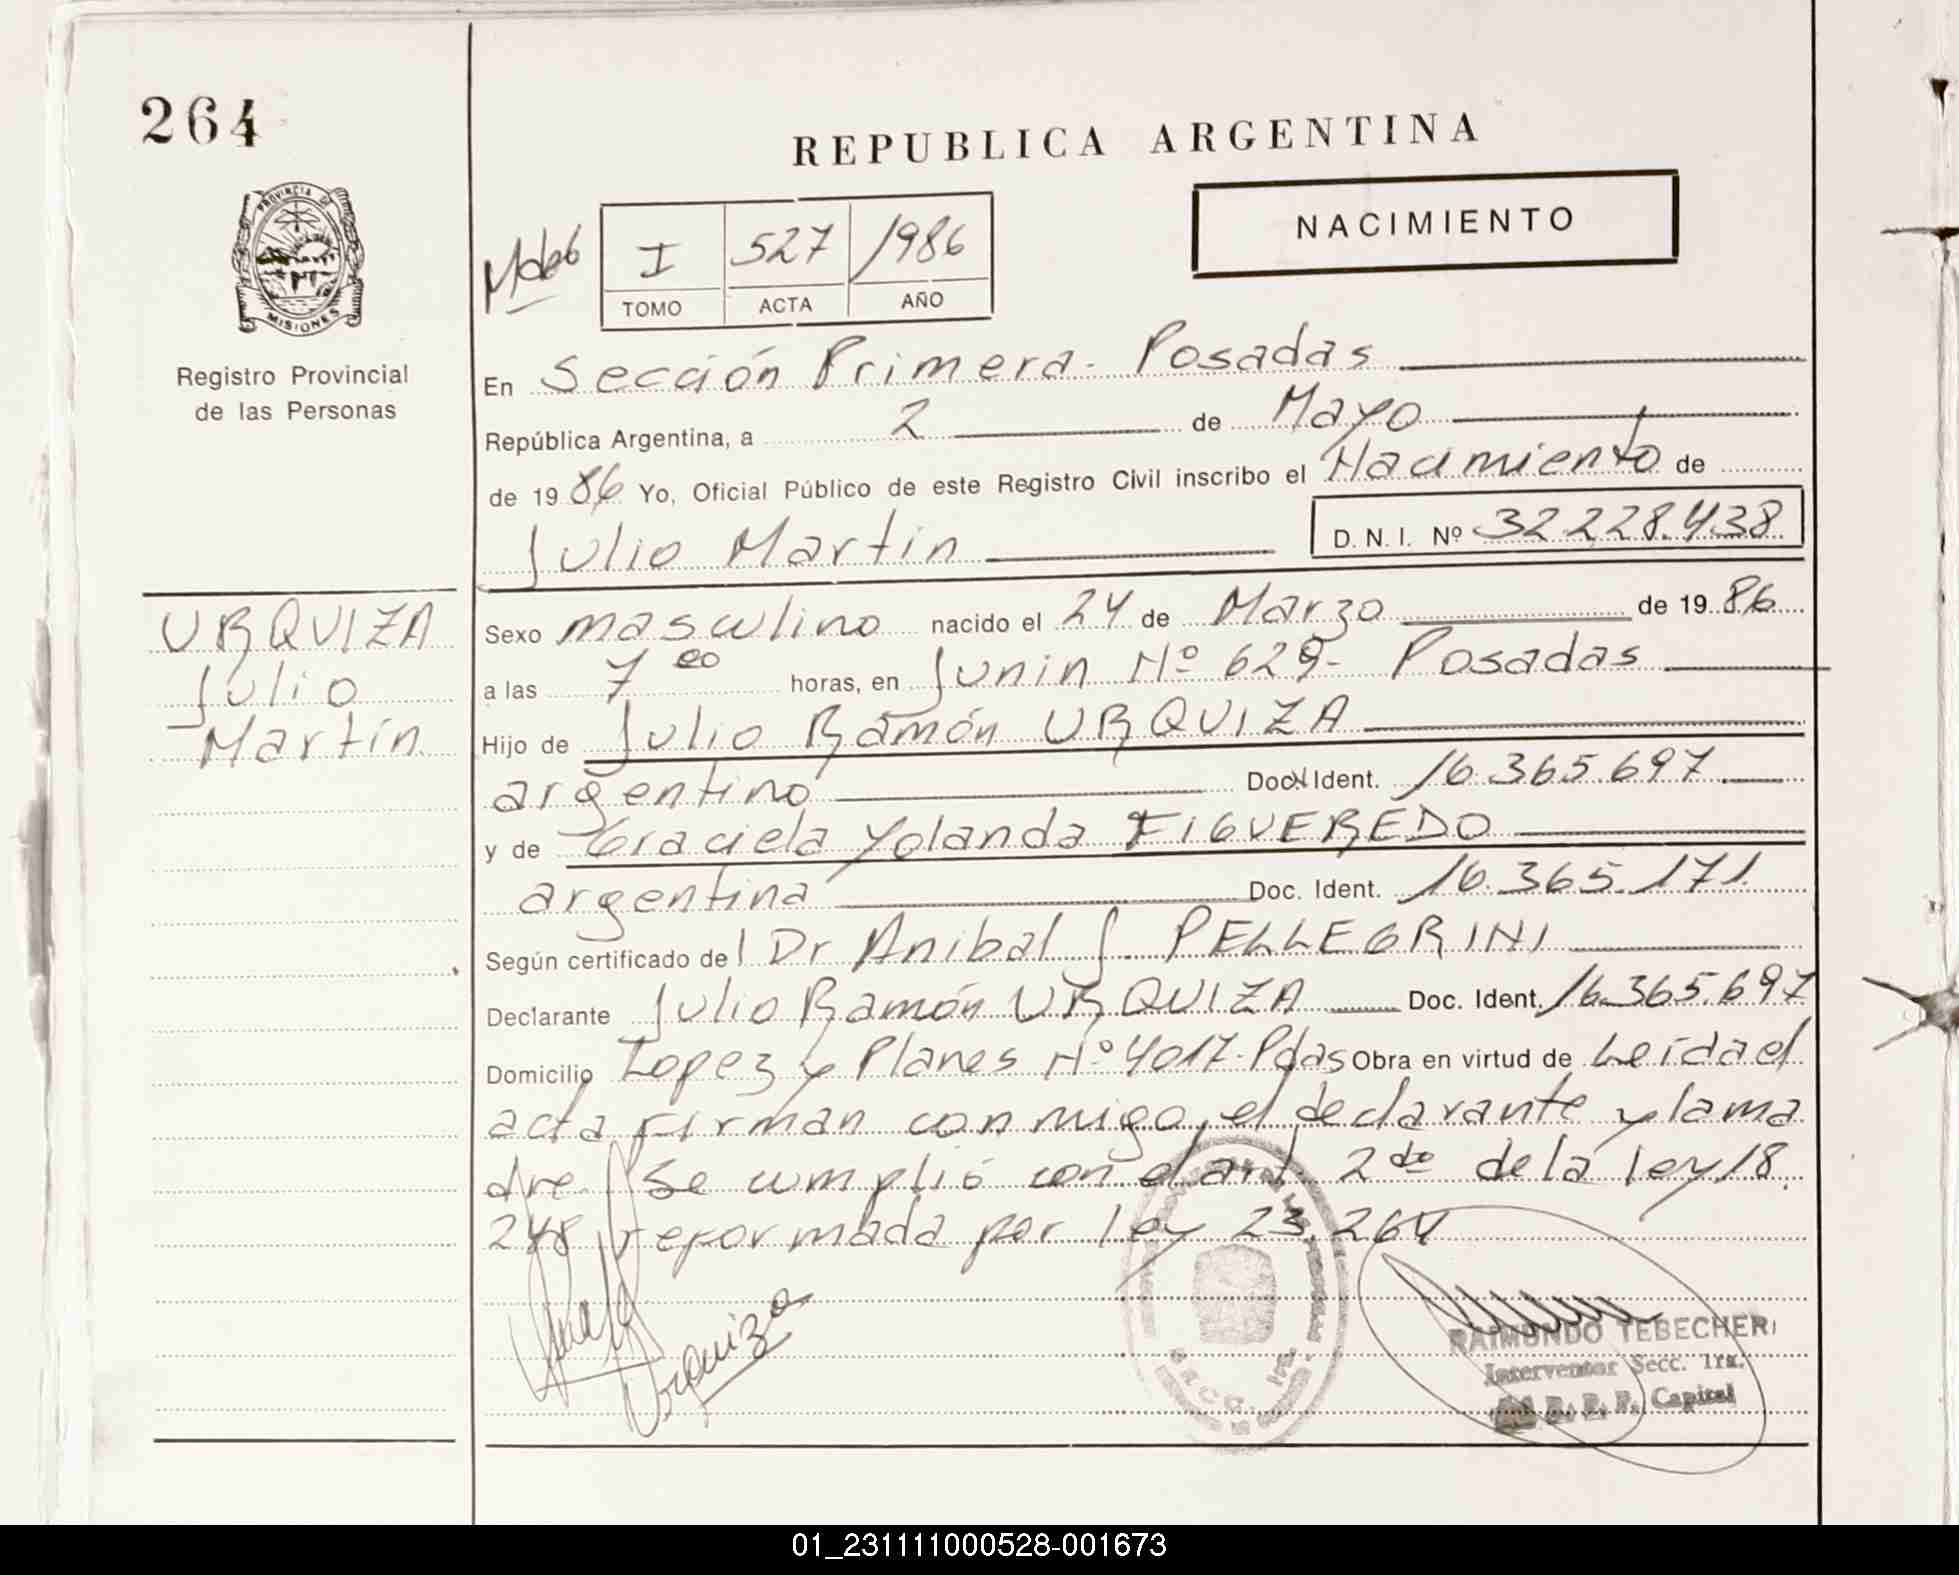 264
REPUBLICA ARGENTINA
PROVINCIA DE
MISIONES
Registro Provincial
de las Personas
NACIMIENTO
I 527 1986
TOMO ACTA AÑO
En Sección Primera - Posadas
República Argentina, a 2 de Mayo
de 1986 Yo, Oficial Público de este Registro Civil inscribo el Nacimiento de
Julio Martín D. N. I. Nº 32.228.438
URQUIZA
Julio
Martín
Sexo masculino nacido el 24 de Marzo de 1986
a las 7 00 horas, en Junin Nº 629 - Posadas
Hijo de Julio Ramón URQUIZA
argentino Doc. Ident. 16.365.697
y de Graciela Yolanda FIGUEREDO
argentina Doc. Ident. 16.365.171
Según certificado del Dr Anibal J PELLEGRINI
Declarante Julio Ramón URQUIZA Doc. Ident. 16.365.697
Domicilio Lopez y Planes Nº 4017 - Pdas Obra en virtud de Leida el
acta firman conmigo, el declarante y la ma
dre. Se cumplió con el art. 2do de la ley 18.
248 reformada por ley 23.264
Urquiza
SECC. 1ra.
RAIMUNDO TEBECHERI
Interventor Secc. 1ra.
R. P. P. Capital
01_231111000528-001673